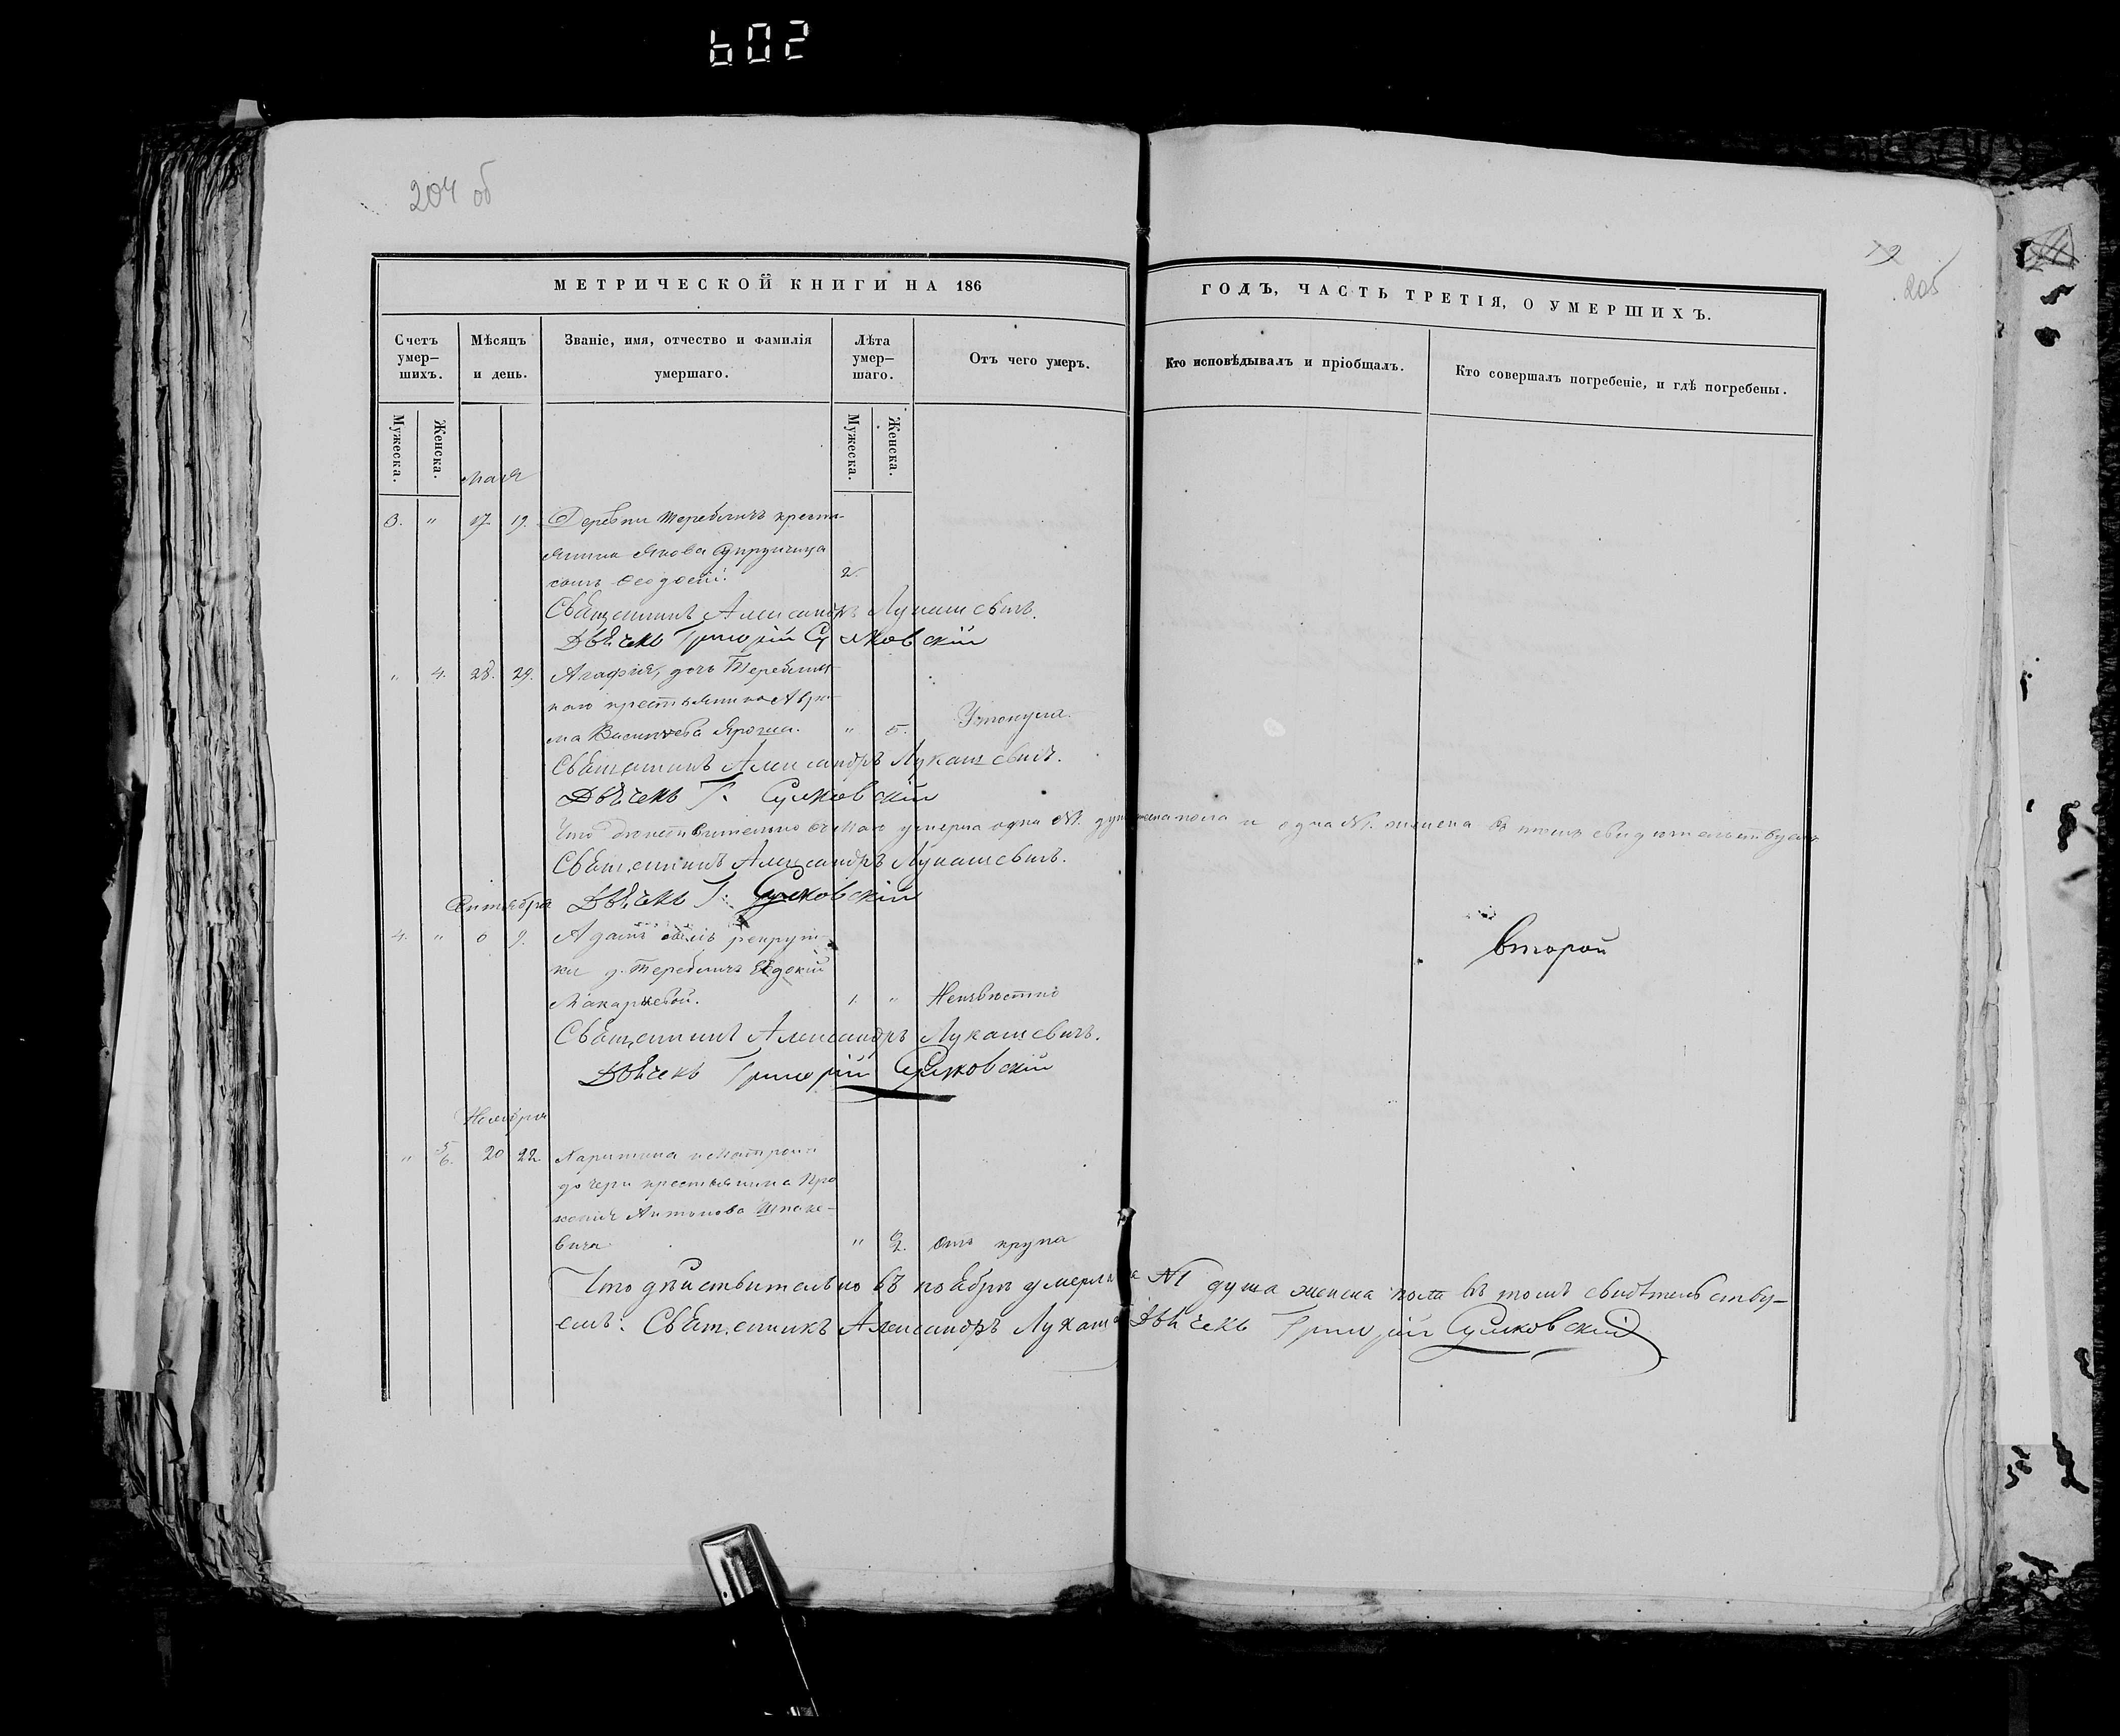 602
204 об
205
МЕТРИЧЕСКОЙ КНИГИ НА 186
ГОДЪ, ЧАСТЬ ТРЕТІЯ, О УМЕРШИХЪ.
Счетъ умер— шихъ.
Мѣсяцъ и день.
Званіе, имя, отчество и фамилія умершаго.
Лѣта умер— шаго.
Отъ чего умеръ.
Кто исповѣдывалъ и пріобщалъ.
Кто совершалъ погребеніе, и гдѣ погребены.
Мужеска.
Женска.
Мужеска.
Женска.
Мая
3. " 17 19. Деревни Теребличъ крестъ-
янина Якова
сынъ Ѳеодосій. 2.
Священникъ Александръ Лукашевичъ.
Дьячекъ Григорій Сулковскій
" 4. 28. 29. Агафія, дочь Тереблич-
наго крестьянина
Васильева Яроша. " 5. Утонула.
Священникъ Александръ Лукашевичъ.
Дьячекъ Г. Сулковскій
Что дѣйствительно въ Маѣ умерла одна М. душа пола и одна женска въ томъ свидѣтельствуемъ
Священникъ Александръ Лукашевичъ.
Дьячекъ Г. Сулковскій
Сентября
4. " 9. Адамъ сынъ рекрут-
ки д. Теребличъ Евдокіи
Макаревой. 1. " Неизвѣстно
второй
Священникъ Александръ Лукашевичъ.
Дьячекъ Григорій Сулковскій
Ноября
" 5 6. 20 22. Харитина и Матрона
дочери крестьянина Про
копія Антонова Шпаке-
вича " 2. отъ крупа
Что дѣйствительно въ ноябрѣ умерла душа женска пола въ томъ свидѣтельству-
емъ. Священникъ Александръ Лукаше Дьячекъ Григорій Сулковскій